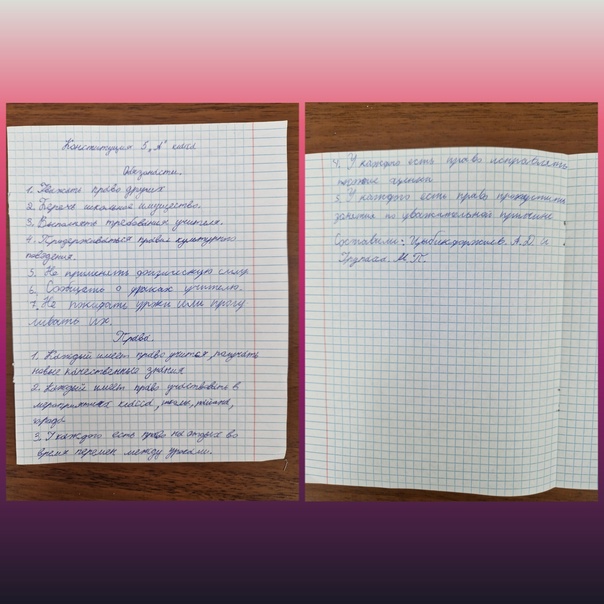 Конституция 5 „А" класса
Обязаности.
1. Уважать право других
2. Береч школьное имущество.
3. Выполнять требования учителя.
4. Придерживаться правил культурного
поведения.
5. Не применять физическую силу
6. Сообщать о драках учителю.
7. Не покидать уроки или прогу
ливать их.
Права.
1. Каждый имеет право учится, получать
новые качественные знания
2. Каждый имеет право участвовать в
мероприятиях класса, школы, района,
города
3. У каждого есть право на отдых во
время перемен между уроками.
4. У каждого есть право исправлять
плохие оценки
5. У каждого есть право пропустить
занятия по уважительной причине
Составили: Цыбикдоржиев А.Д. и
М.П.